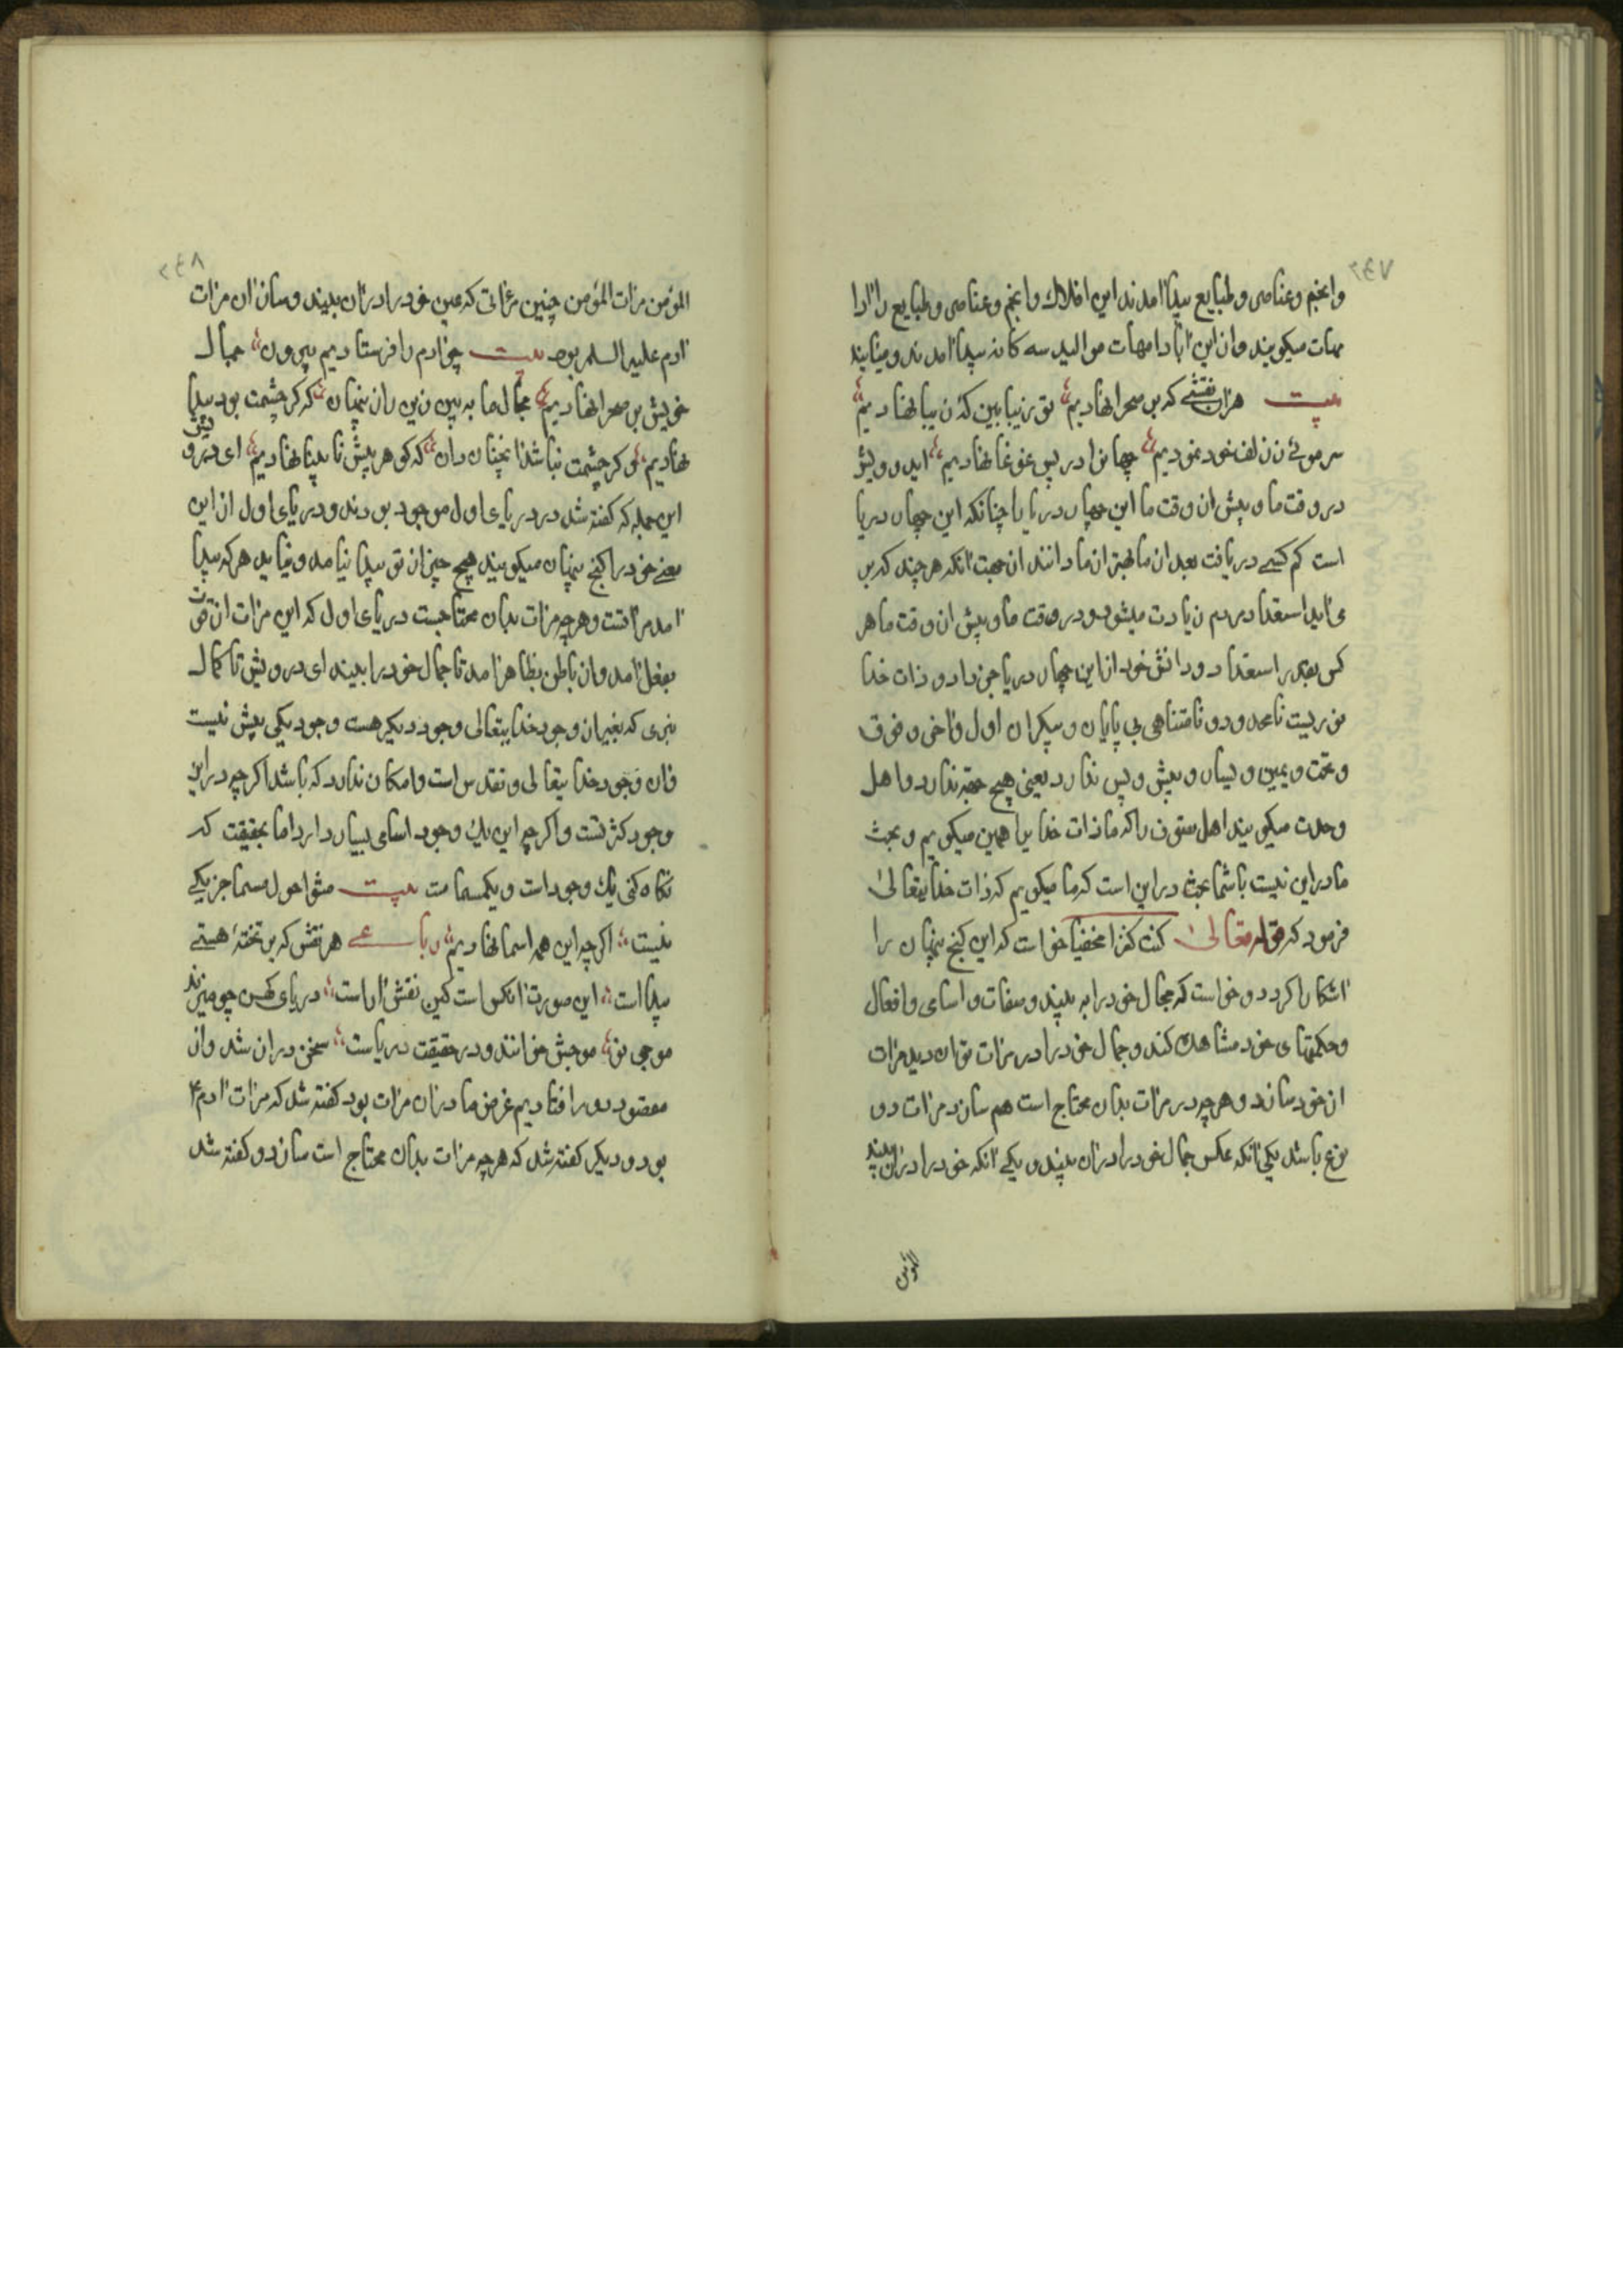 ۲۴۷
وانجم و عناصر و طبایع پیدا آمدند این افلاک و انجم و عناصر و طبایع را آبا و ا
مهات میکویند و از این آبا و امهات موالید سه کانه پیدا آمدند و میایند
بیت هزار نقشی که بر صحرا نهادیم تو زیبا بین که زیبا نهادیم
سر موئی ز زلف خود نمودیم جهانرا در پس غوغا نهادیم ایدرویش
در وقت ما و پیش از وقت ما این جهان دریا را چنانکه این جهان دریا
است کم کسی دریافت بعد از ما بهتر از ما دانند از جهت آنکه هر چند که بر
می آید استعداد مردم زیادت میشود و در وقت ما و پیش از وقت ما هر
کس بقدر استعداد و دانش خود از این جهان دریا خبر داد و ذات خدا
نوریست نامحدود و نامتناهی بی پایان و بیکران اول و آخر و فوق
و تحت و یمین و یسار و پیش و پس ندارد یعنی هیچ جهة ندارد و اهل
وحدت میکویند اهل تصوف را که ما ذات خدا را همین میکویم و بحث
ما در این نیست با شما بحث در این است که ما میکویم که ذات خدایتعالی
فرمود که قوله تعالی کنت کنزا مخفیا خواست که این کنج پنهان را
آشکارا کردد و خواست که جمال خود را به بیند و صفات و اسامی و افعال
و حکمتهای خود مشاهده کند و جمال خود را در مرآت توان دید مرآت
از خود سازد و هرچه در مرآت بدان محتاج است هم سازد مرآت دو
نوع باشد یکی آنکه عکس جمال خود را در آن بیند و یکی آنکه خود را در آن بیند
المؤمن
۲۴۸
المؤمن مرات المؤمن چنین مرآتی که عین خود را در آن بیند و ساز آن مرات
آدم علیه السلم بود بیت چو آدم را فرستادیم بیرون جمال
خویش بر صحرا نهادیم جمال ما به بین زین راز پنهان که کر چشمت بود پیدا
نهادیم و کر چشمت نباشد آنچنان دان که کوهر پیش نابینا نهادیم ای درویش
این جمله که کفته شد در دریای اول موجود بودند و دریای اول از این
معنی خود را کنج پنهان میکویند هیچ چیز از تو پیدا نیامد و نیاید هر که پیدا
آمد مرآتست و هرچه مرات بدان محتاجست دریای اول که این مرات از قوت
بفعل آمد و از باطن بظاهر آمد تا جمال خود را ببیند ای درویش تا کمال
نبری که بغیر از وجود خدایتعالی وجود دیکر هست وجود یکی بیش نیست
و آن وجود خدایتعالی و تقدس است و امکان ندارد که باشد اکرچه در این
وجود کثرتست و اکرچه این یک وجود اسامی بسیار دارد اما بحقیقت که
نکاه کنی یک وجود است و یکمسما مت بیت مشو احول مسما جز یکی
نیست اکرچه این همه اسما نهادیم رباعی هر نقش که بر تختهٔ هستی
پیدا است این صورت آنکس است کین نقش آراست دریای کهن چو میزند
موجی نو موجش خوانند و در حقیقت دریاست سخن دراز شد و از
مقصود دور افتادیم غرض ما در آن مرات بود کفته شد که مرات آدم ۴
بود و دیکر کفته شد که هرچه مرات بدان محتاج است سازد و کفته شد